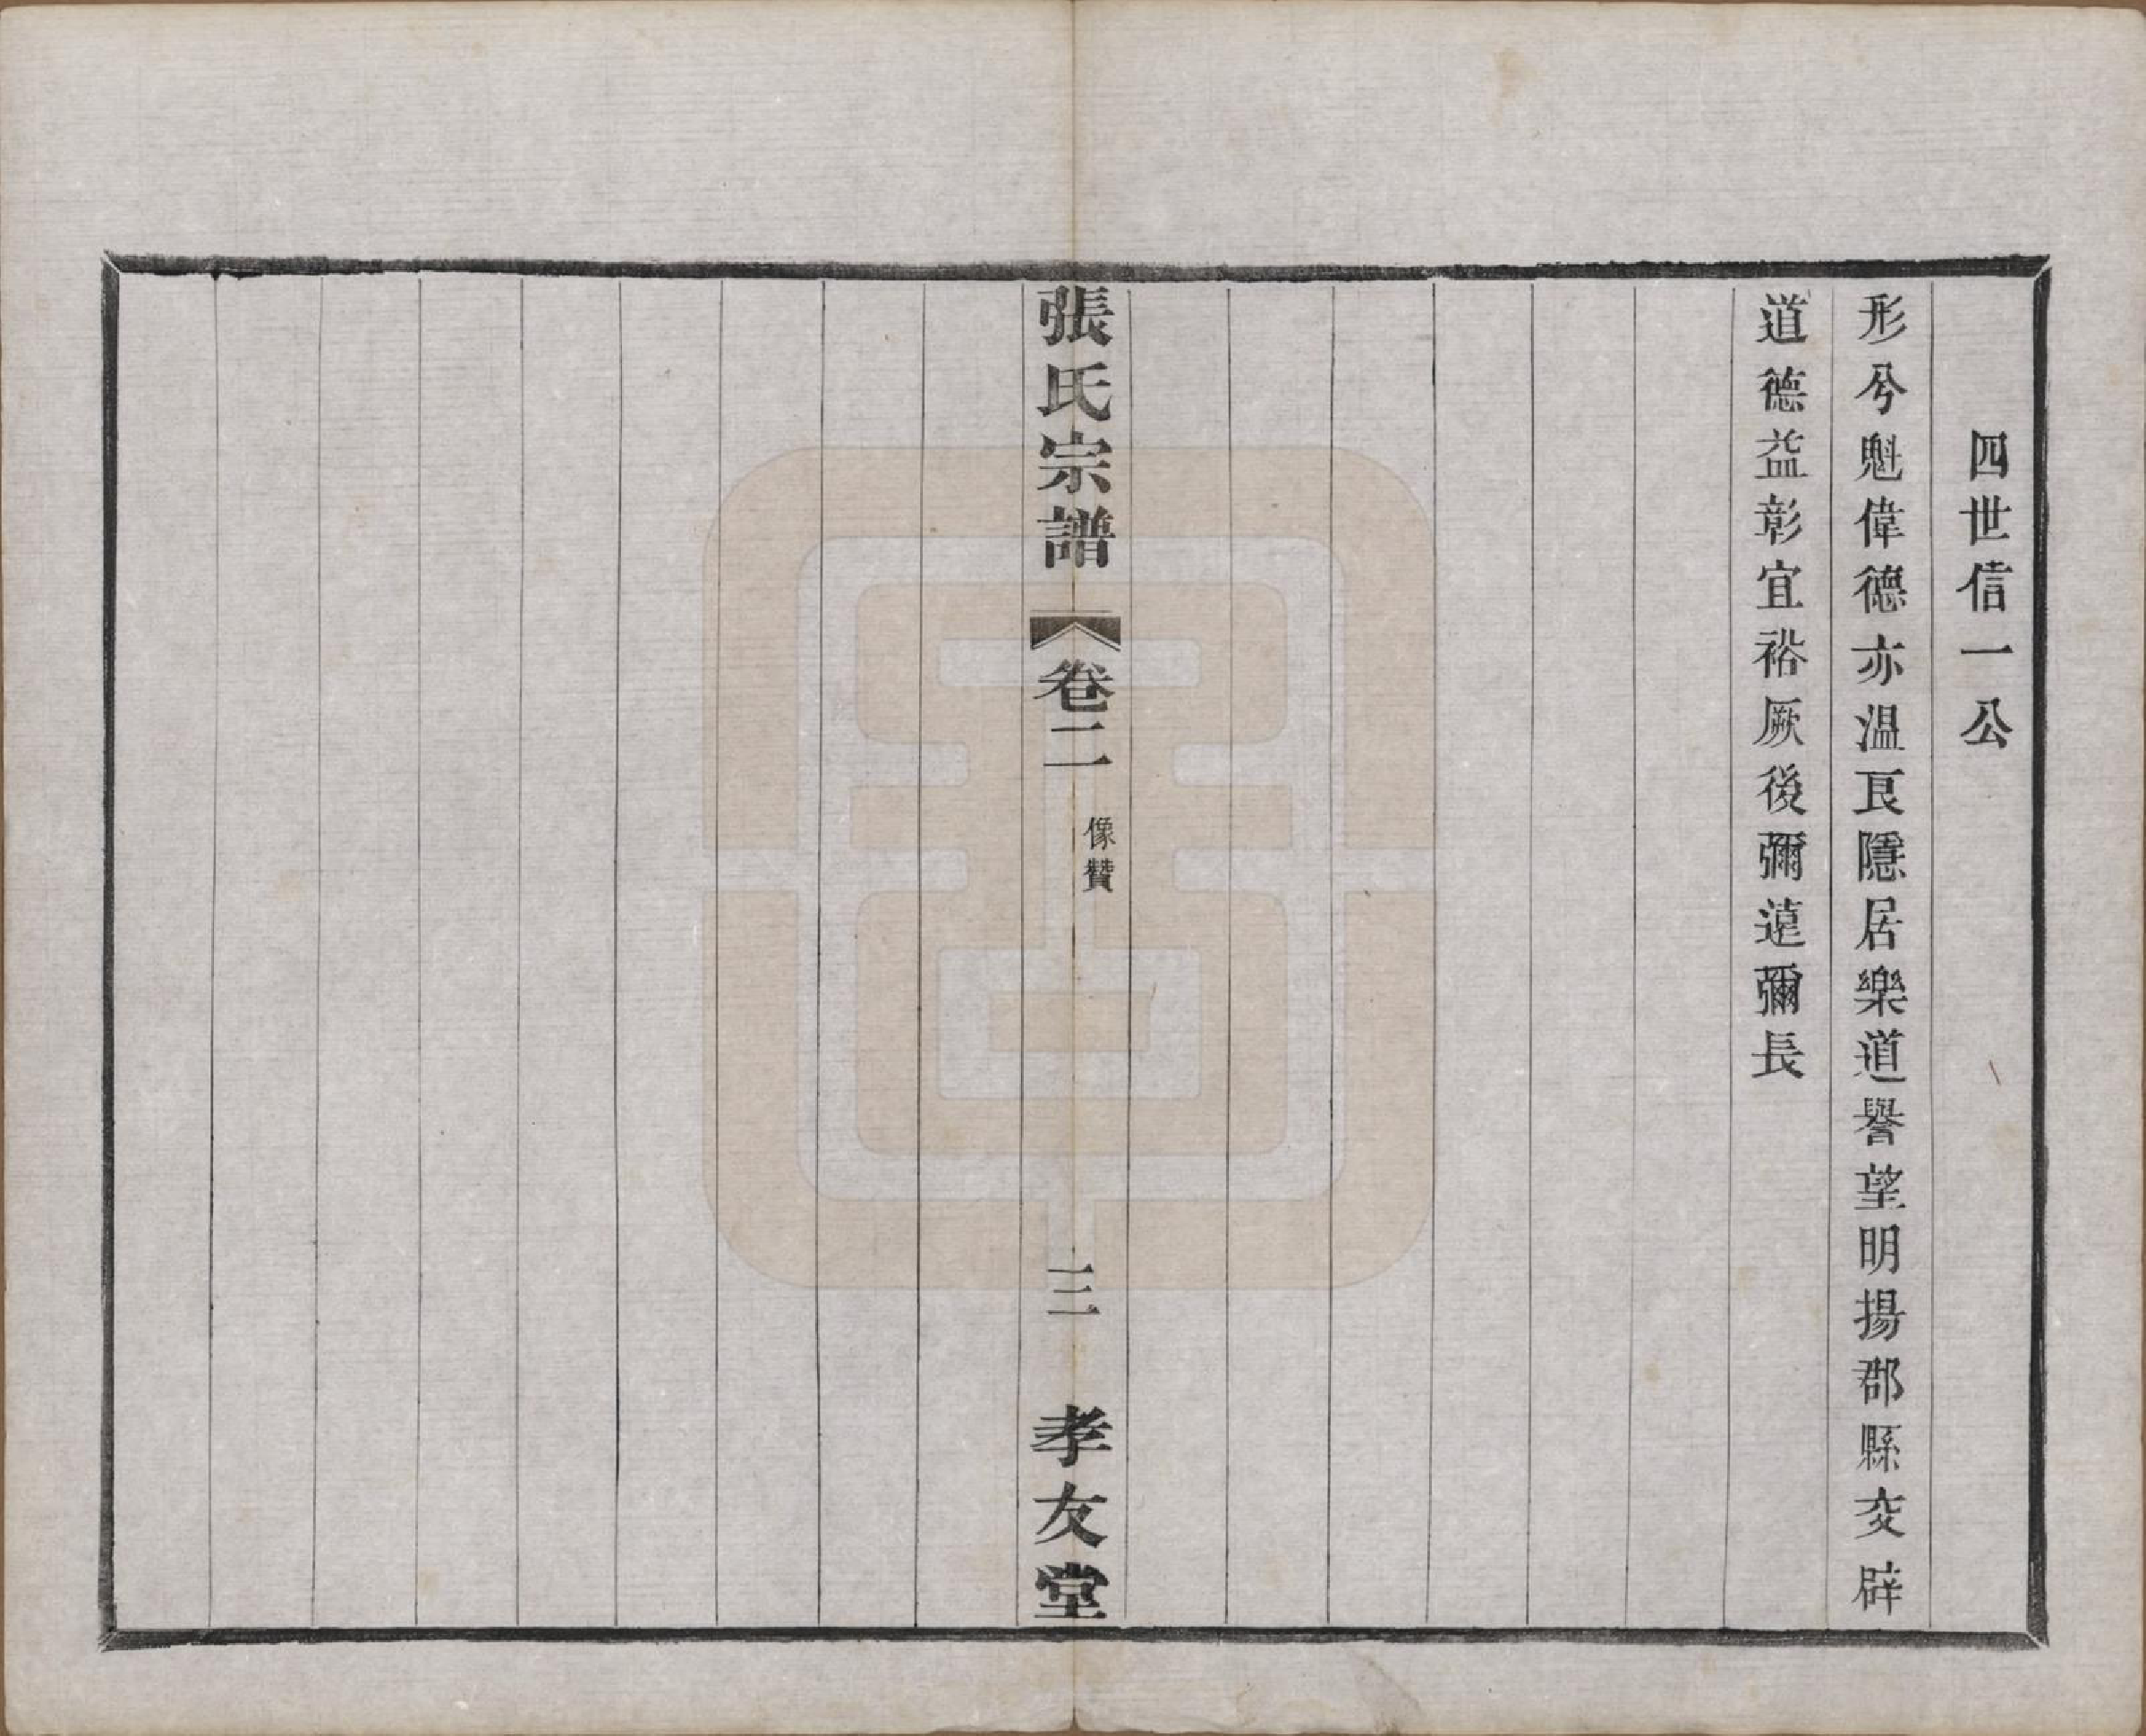 四世信一公
形兮魁偉德亦溫良隱居樂道譽望明揚郡縣交辟
道德益彰宜裕厥後彌遠彌長
張氏宗譜 卷二 像贊 三 孝友堂